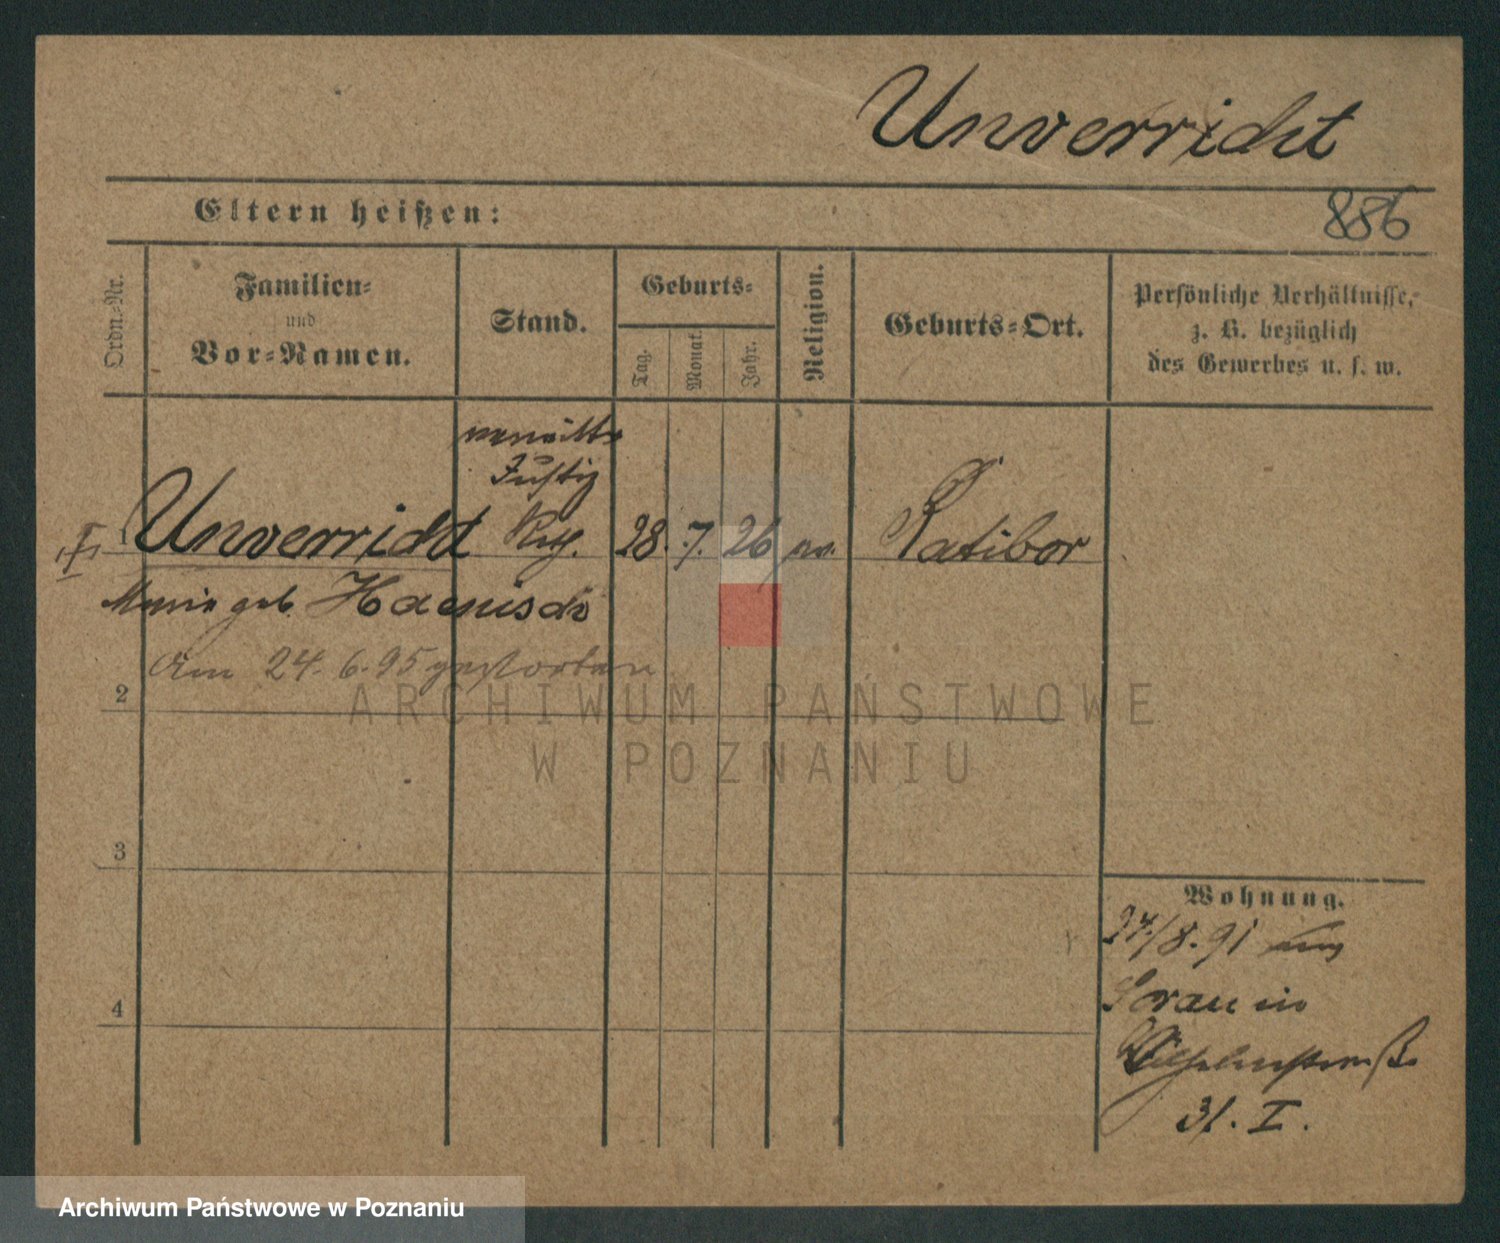 Unverricht
886
Eltern heißen:
Ordn.-Nr.
Familien-
und
Vor-Namen.
Stand.
Geburts-
Tag.
Monat.
Jahr.
Religion.
Geburts-Ort.
Persönliche Verhältnisse,
z. B. bezüglich
des Gewerbes u. s. w.
Justiz
1 Unverricht 28. 7. 26 Ratibor
Marie geb. Haenisch
Am 24. 6. 95 gestorben
2
3
4
Wohnung.
24./8. 91
Sorau in
Wilhelmstraße
31. I.
ARCHIWUM PAŃSTWOWE
W POZNANIU
Archiwum Państwowe w Poznaniu